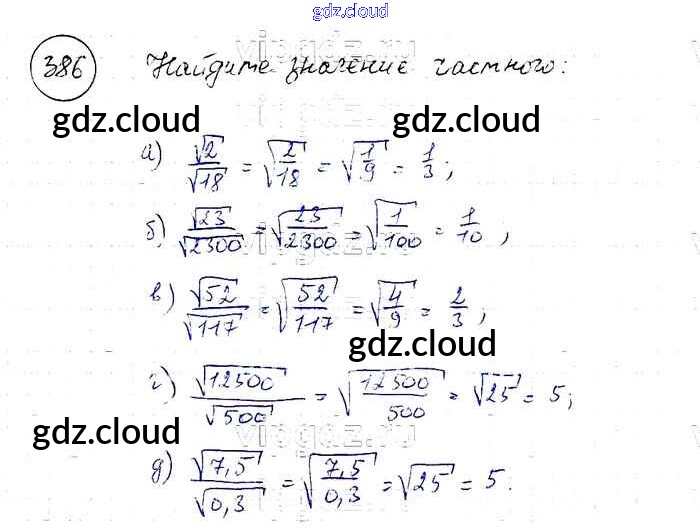 gdz.cloud
386 Найдите значение частного:
gdz.cloud gdz.cloud
а) √2/√18 = √(2/18) = √(1/9) = 1/3;
б) √23/√2300 = √(23/2300) = √(1/100) = 1/10;
в) √52/√117 = √(52/117) = √(4/9) = 2/3;
gdz.cloud
г) √12500/√500 = √(12500/500) = √25 = 5;
gdz.cloud
д) √7,5/√0,3 = √(7,5/0,3) = √25 = 5.